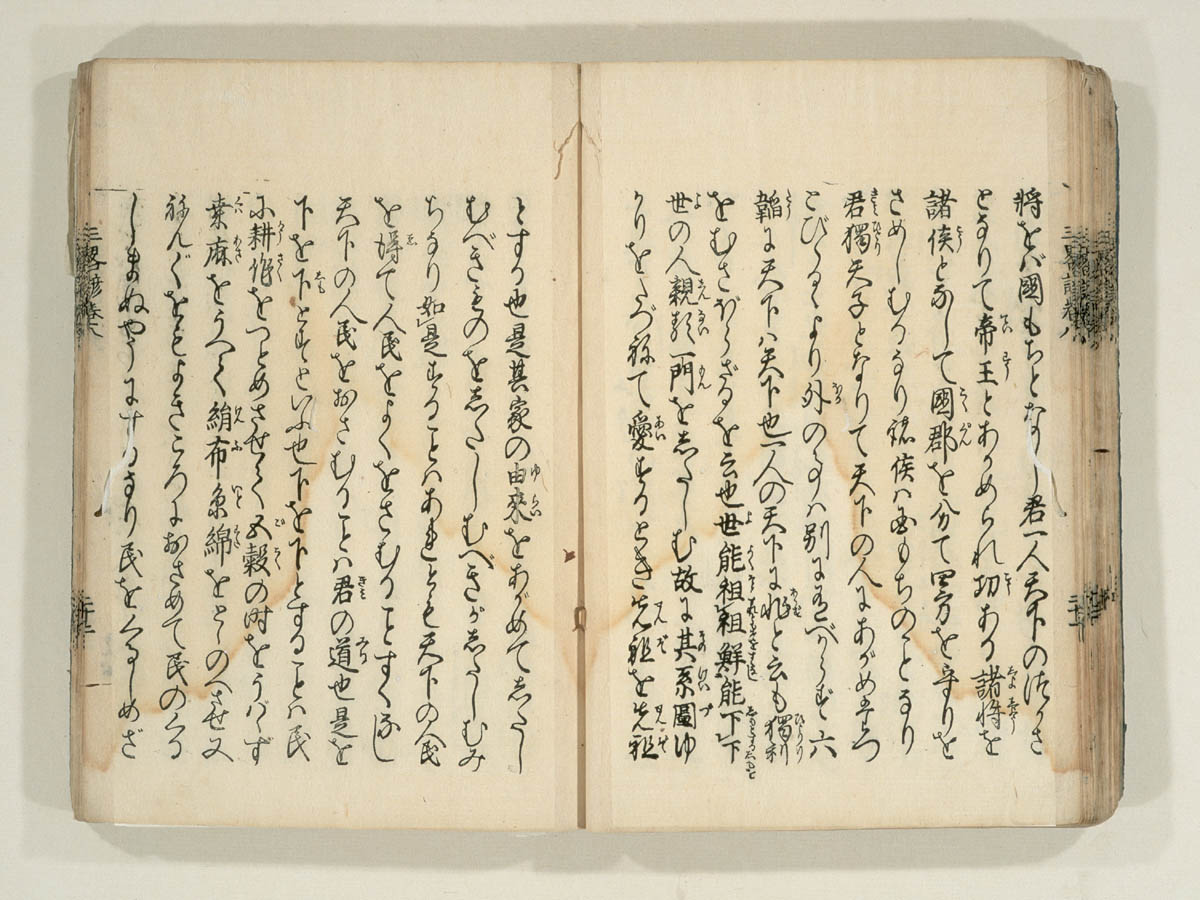 将をば國もちとなし君一人天下の
となりて帝王とあがめられ切ある諸将を
諸侯となして國郡を分て四方を守りを
さめしむるなり諸侯は國もちのことなり
君獨天子となりて天下の人にあがめ
こびらるより外の事は別に有べからず六
韜に天下は天下也一人の天下に非と云も獨利
をむさぼらざるを云也世能祖祖鮮能下下
世の人親類一門をしたしむ故に其系圖ゆ
かりをたづねて愛するとき先祖を先祖
とする也是其家の由来をあがめてしたし
むべきものをしたしむべきがしたしむみ
ちなり如是することはあれども天下の人民
を得て人民をよくをさむることすくなし
天下の人民をおさむることは君の道也是を
下を下とすといふ也下を下とすることは民
に耕作をつとめさせて五穀の時をうばはず
桑麻をうへて絹布糸綿をととのへさせ又
ねんぐをもよきころにおさめて民のくる
しまぬやうにするなり民をくるしめざ
三略諺 巻八
三略諺巻八